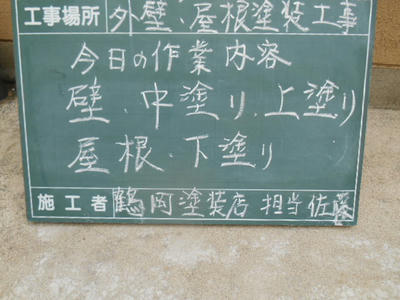 工事場所 外壁、屋根塗装工事
今日の作業内容
壁、中塗り、上塗り
屋根、下塗り
施工者 鶴岡塗装店 担当佐藤